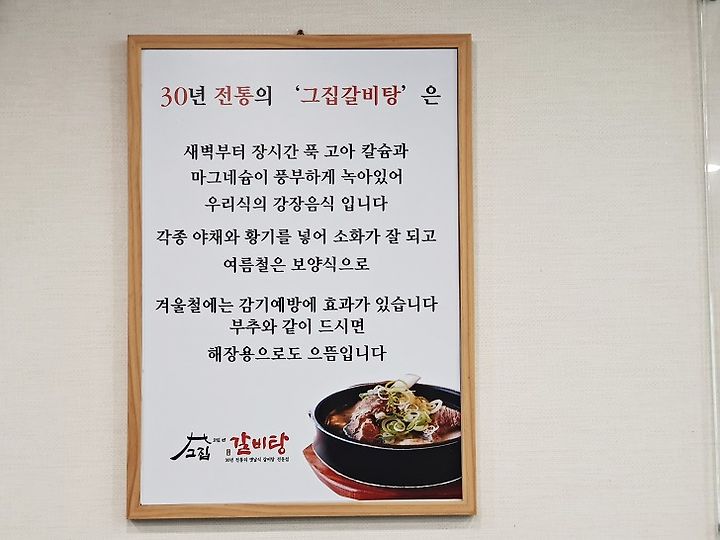 30년 전통의 '그집갈비탕' 은
새벽부터 장시간 푹 고아 칼슘과
마그네슘이 풍부하게 녹아있어
우리식의 강장음식 입니다
각종 야채와 황기를 넣어 소화가 잘 되고
여름철은 보양식으로
겨울철에는 감기예방에 효과가 있습니다
부추와 같이 드시면
해장용으로도 으뜸입니다
그집 갈비탕
30년 전통의 옛날식 갈비탕 전문점